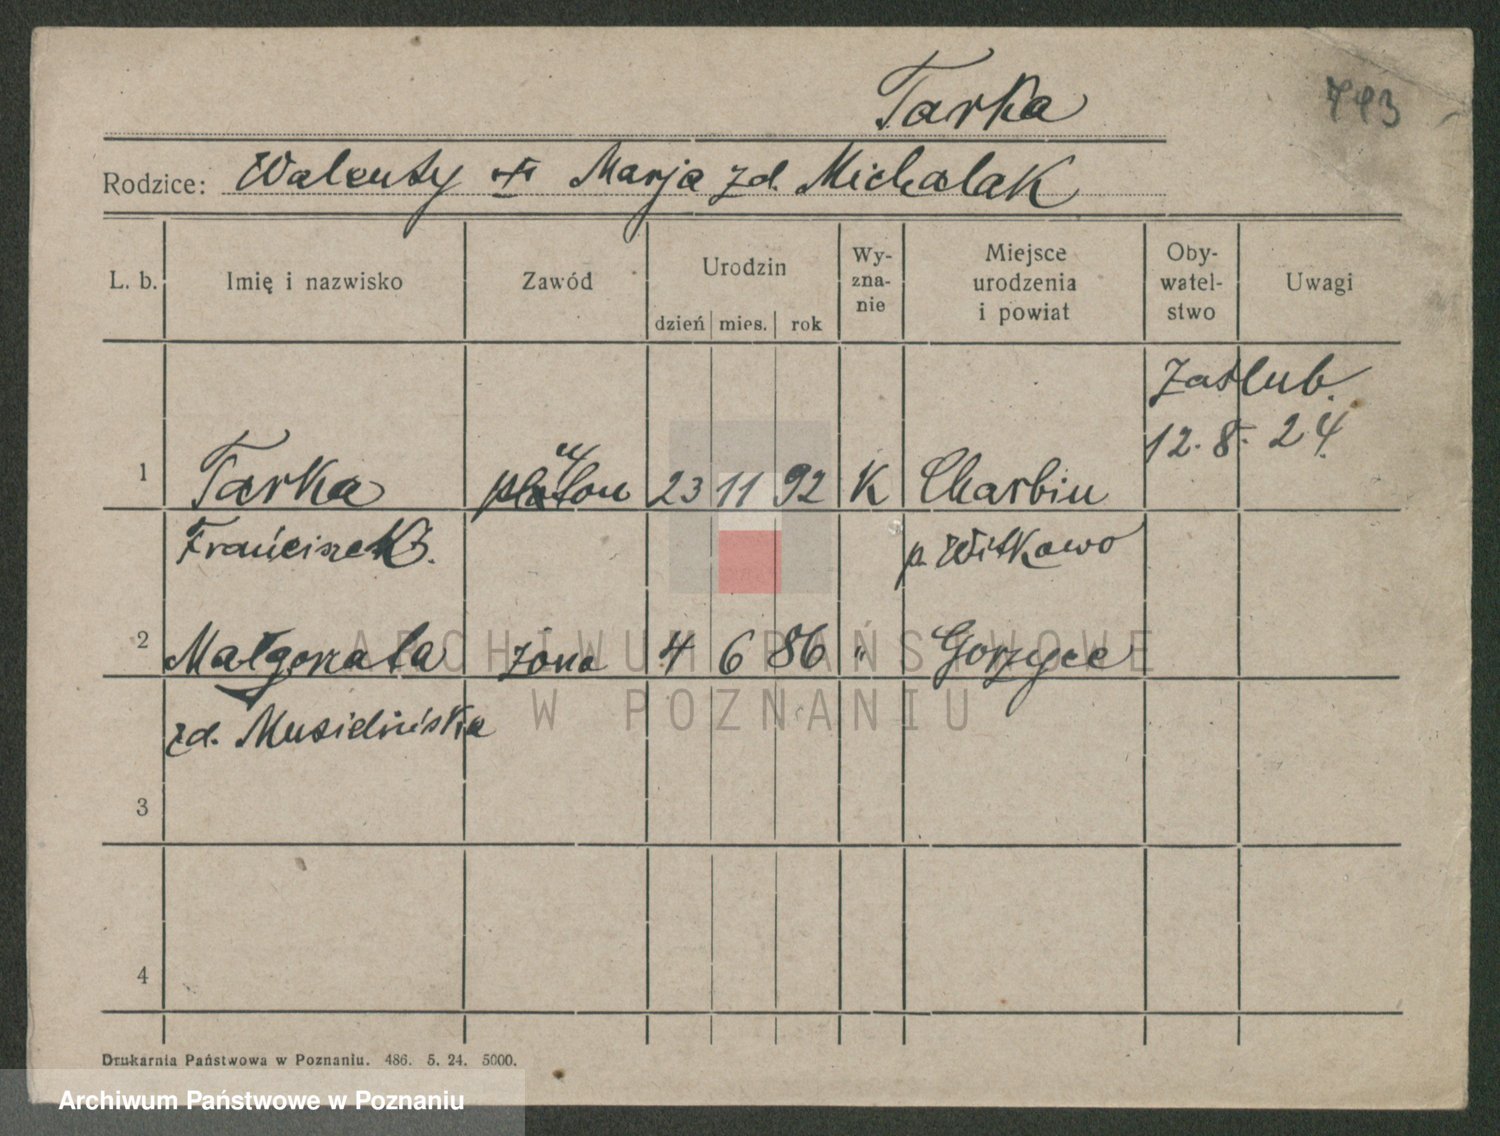 Tarka
793
Rodzice: Walenty + Marja zd. Michalak
L. b. Imię i nazwisko Zawód Urodzin dzień mies. rok Wy-zna-nie Miejsce urodzenia i powiat Oby-watel-stwo Uwagi
Zaślub.
12. 8. 24.
1 Tarka pluton 23 11 92 K Charbin
Franciszek. p. Witkowo
2 Małgorzata żona 4 6 86 " Gorzyce
zd. Musielińska
3
4
ARCHIWUM PAŃSTWOWE
W POZNANIU
Drukarnia Państwowa w Poznaniu. 486. 5. 24. 5000.
Archiwum Państwowe w Poznaniu